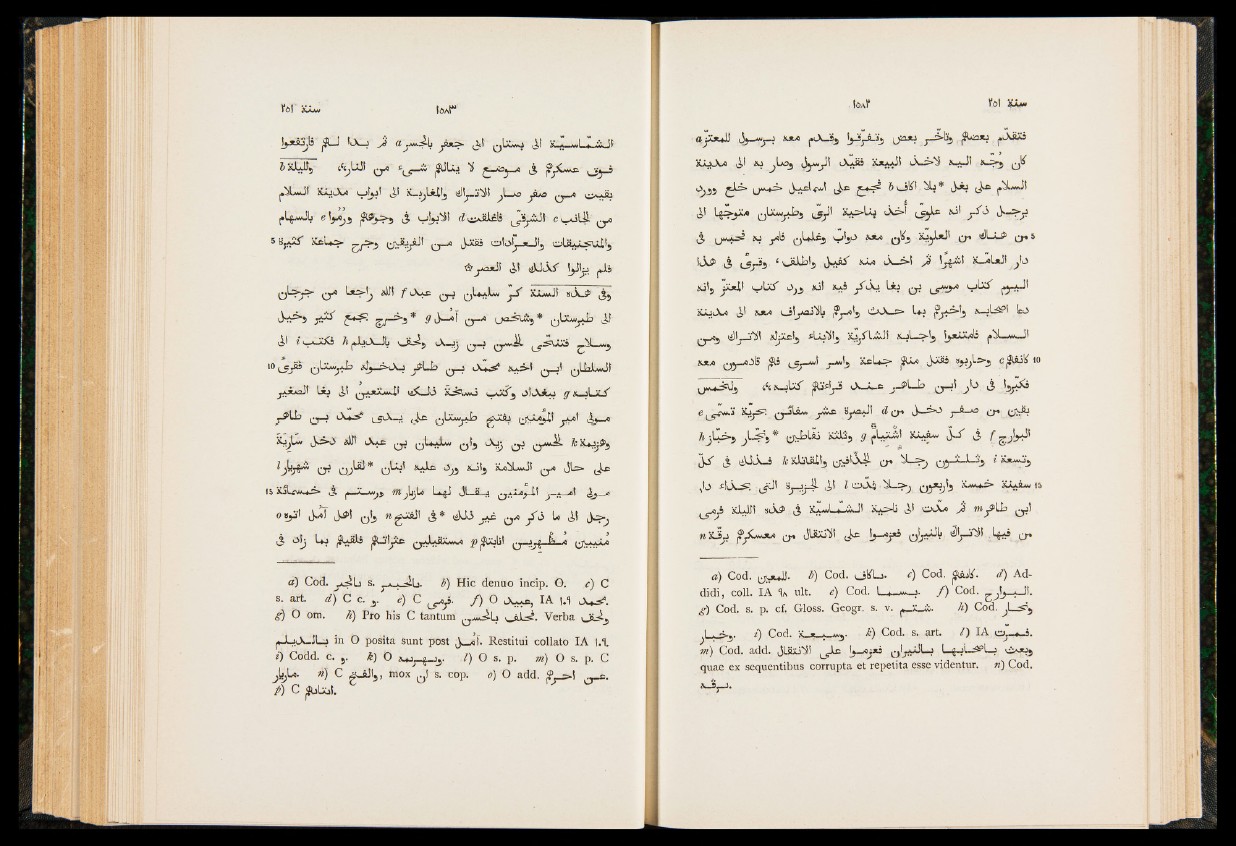 سنة ٢٥١ ١٥٨٢
فتقدّم بعضهم وتأخّر بعض وتفرّقوا وقدم معه برسول للمعتزّ a
كان وُجّه اليه لاخذ البيعة فقيّد الرسول وصار به الى مدينة
السلام على بغل *بلا اكاف b فجمع على اسماعيل خمس خلع وورد
برجل ذكر انه علوىّ أخذ بناحية الرىّ وطبرستان متوجّها الى
من هناك من العلويّة وكان معه دوابّ وغلمان فامر به فحبس فى
دار العامّة اشهرا ثم اخذ منه كفيل واطلق، وقرئ فى هذا
اليوم كتاب موسى بن بغا يذكر فيه انه ورد كتاب المعتزّ وانه
دعا اصحابه واخبرهم بما حدث وامرهم بالانصراف معه الى مدينة
السلام فامتنعوا واجابه الشاكريّة والابناء واعتزله الاتراك ومن
كانفهم c وحاربوه فقتل منهم جماعة واسر اسرى فهم قادمون معه
فكبّروا فى دار ابن طاهر عند قراءتهم كتابه، ولخمس
بقين من صفر دخل من d البصرة عشر سفائن بحريّة تسمّى e
البوارج f فى كلّ سفينة اشتيام g وثلثة نفّاطين *ونجّار وخبّاز h
وتسعة i وثلثون رجلا من الجذّافين والمقاتلة k فذلك فى كلّ
سفينة خمسة واربعون رجلا فمدّت l الى الجزيرة التى بحذاء دار
ابن طاهر m ثم مدّت الى ناحية الشمّاسيّة فى هذه الليلة فرمى
من فيها الاتراك بالنيران فعزموا على الانتقال من معسكرهم برقّة n
a) Cod. للمعتزين. b) Cod. بلاكاف. c) Cod. كانفهم. d) Ad-
didi, coll. IA ٩٨ ult. e) Cod. بسما. f) Cod. البوارح.
g) Cod. s. p. cf. Gloss. Geogr. s. v. شتيم. h) Cod. وبحار
وخباز. i) Cod. وسبعة. k) Cod. s. art. l) IA فمرّت.
m) Cod. add. وبعث باصحابها بالنيران فعزموا على الانتقال
quae ex sequentibus corrupta et repetita esse videntur. n) Cod.
برقه.
سنة ٢٥١ ١٥٨٣
الشمّاسيّة الى بستان الى جعفر بالجسر a ثم بدا لهم فارتفعوا
فوق عسكرهم فى موضع لا ينالهم شىء من النار، ولليلة b
بقيت من صفر صار الاتراك والمغاربة الى ابواب مدينة السلام
من الجانب c الشرقىّ فاغلقت d الابواب فى وجوههم ورُموا e بالسهام
والمنجنيقات والعرّادات فقتل من الفريقين وجرح جماعة كثيرة
فلم يزالوا كذلك الى العصر
وفى هذه السنة كرّ سليمان بن عبد f الله راجعا من جرجان
الى طبرستان *وشخص من آمل g *وخرج بجمع كثير وخيل
وسلاح فتنحّى الحسن بن زيد ولحق بالديلم h فكتب i الى
السلطان ابن اخيه محمّد بن طاهر بدخوله طبرستان فقرئ
كتابه g ببغداد وكتب نسخة ذلك المستعين الى بغا الصغير
مولى امير المؤمنين بفتح طبرستان على يدى محمّد بن طاهر
وهزيمة k الحسن بن زيد وان سليمان بن عبد الله دخل سارية
على حال من السلامة وانه ورد عليه ابنان *لقارن بن شهريار l
مولى امير المؤمنين يقال لهما مازيار m ورستم فى خمسمائة
رجل الى ما ذكر من غير ذلك *فى الفتح n وان اهل آمل اتوه o
منيبين مظهرين انابتهم p مستقيلين عثراتهم فلقيهم بما زاد فى
a) Cod. بالحير s. بالجسر. b) Hic denuo incip. O. c) C
s. art. d) C c. و. e) C فرمى. f) O عبيد, IA ١.٩ محمد.
g) O om. h) Pro his C tantum تخلف بالحسن. Verba ولحق
بالديلم in O posita sunt post آمل. Restitui collato IA ١.٩.
i) Codd. c. و. k) O وبهزيمة. l) O s. p. m) O s. p. C
مازيار. n) C والفتح, mox ان s. cop. o) O add. عن اخرهم.
p) C